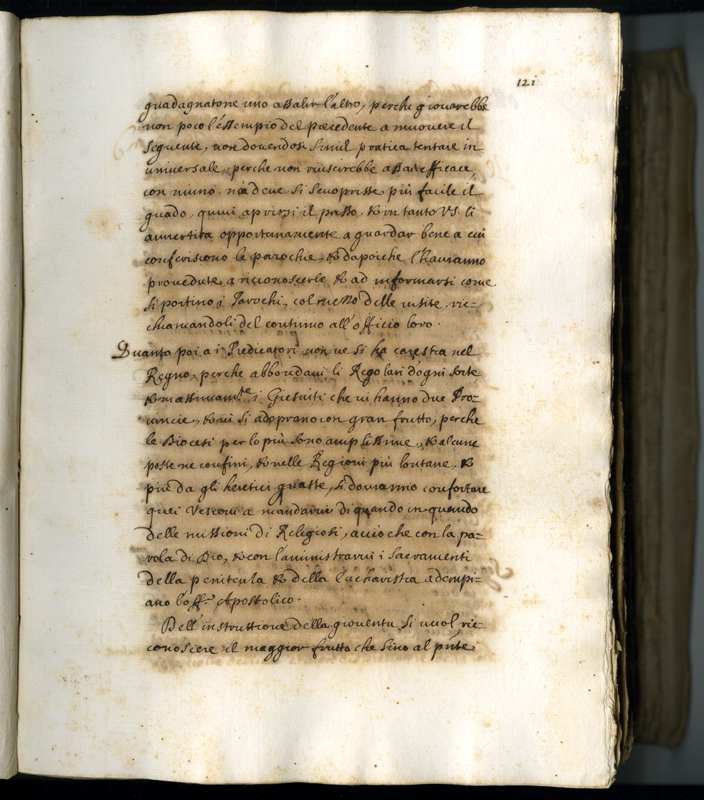 121
guadagnatone uno assalir l'altro, perche giovarebbe
non poco l'essempio del precedente a muovere il
seguente, non dovendosi simil pratica tentare in
universale, perche non riuscirebbe assai efficace,
con niuno. mà dove si scuoprisse più facile il
guado, quivi aprirsi il passo. & in tanto V.S. li
avvertirà opportunamente a guardar bene a cui
conferiscono le parochie, & dapoiche l'havranno
provedute a riconoscerle & ad informarsi come
si portino i Parochi, col mezzo delle visite, ric-
chiamandoli del continuo all'officio loro.
Quanto poi a i Predicatori non ve si ha carestia nel
Regno, perche abbondavi li Regolari d'ogni sorte
& massimam.te i Giesuiti che vi hanno due Pro-
vincie, & vi si adoprano con gran frutto, perche
le Diocesi per lo più sono amplissime, & alcune
poste ne confini, & nelle Regioni più lontane, &
più da gli heretici guaste, si dovranno confortare
quei Vescovi a mandarvi di quando in quando
delle missioni di Religiosi, acciò che con la pa-
rola di Dio, & con l'aministrarvi i sacramenti
della penitenza & della Eucharistia adempi-
ano l'off.o Apostolico.
Dell'instruttione della gioventu si vuol ric-
conoscere il maggior frutto che sino al pnte